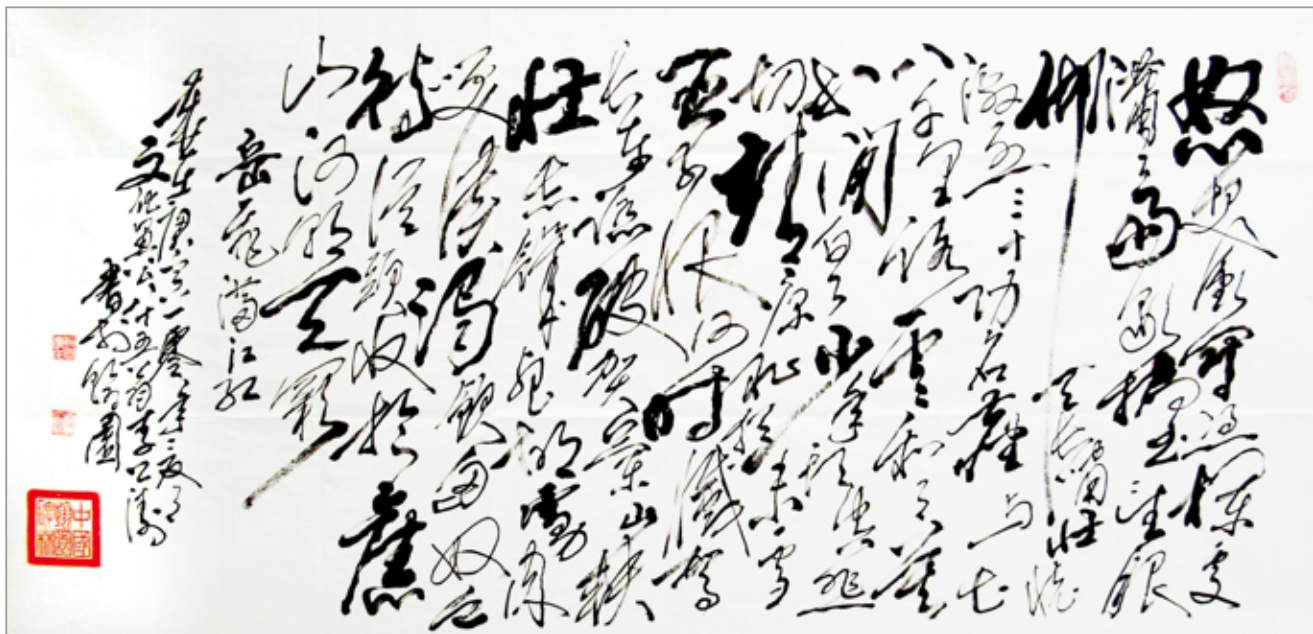 怒髮衝冠憑欄處
瀟瀟雨歇抬望眼
仰天長嘯壯懷
激烈三十功名塵與土
八千里路雲和月莫
等閒白了少年頭空悲
切靖康恥猶未雪
臣子恨何時滅駕
長車踏破賀蘭山缺
壯志飢餐胡虜肉
笑談渴飲匈奴血
待從頭收拾舊
山河朝天闕
岳飛滿江紅
庚寅一零年
文化